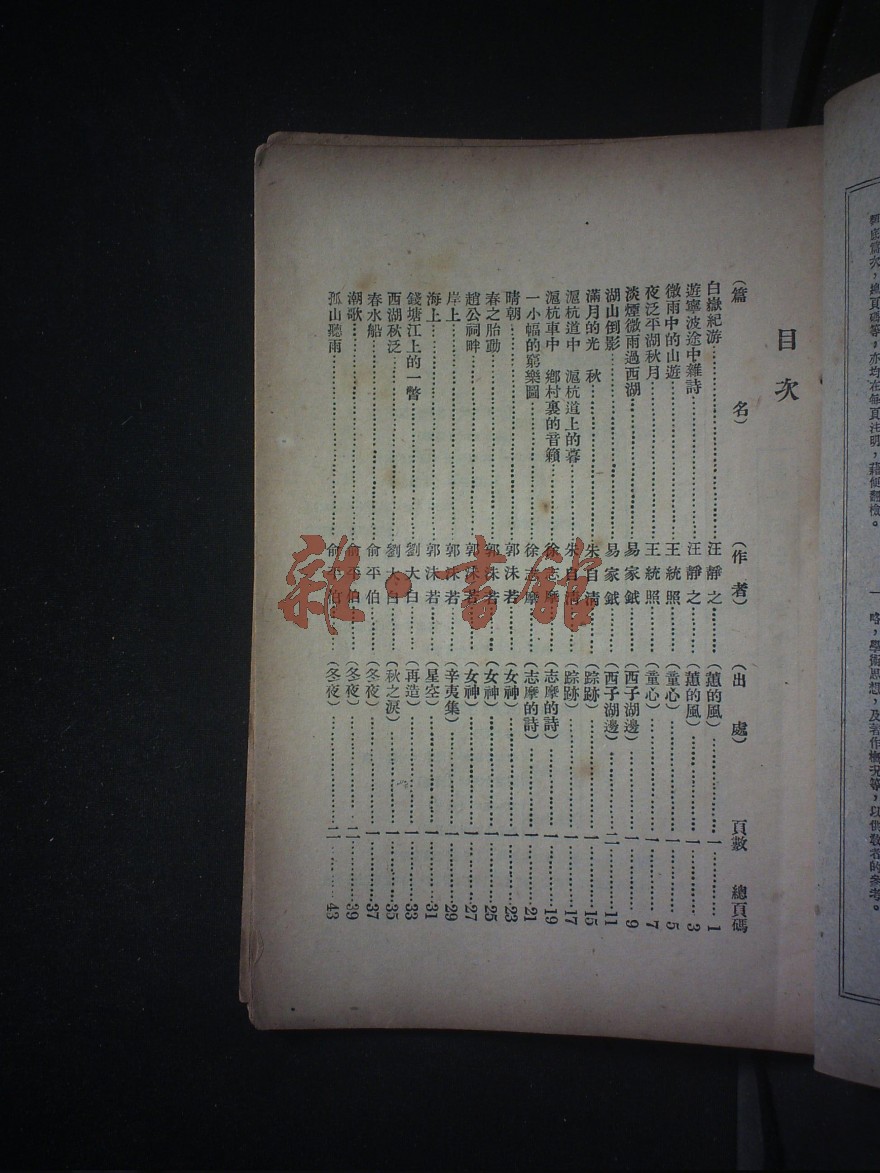 篇次，總頁碼等，亦均在每頁注明，藉便翻檢。
一 略，學術思想，及著作概況等，以供教者的參考。
目次
（篇名） （作者） （出處） 頁數 總頁碼
白嶽紀游……汪靜之……（蕙的風）……一……1
遊寧波途中雜詩……汪靜之……（蕙的風）……一……3
微雨中的山遊……王統照……（童心）……一……5
夜泛平湖秋月……王統照……（童心）……一……7
淡煙微雨過西湖……易家鉞……（西子湖邊）……一……9
湖山倒影……易家鉞……（西子湖邊）……二……11
滿月的光 秋……朱自清……（踪跡）……一……15
滬杭道中 滬杭道上的暮……朱自清……（踪跡）……一……17
滬杭車中 鄉村裏的音籟……徐志摩……（志摩的詩）……一……19
一小幅的窮樂圖……徐志摩……（志摩的詩）……一……21
晴朝……郭沫若……（女神）……一……23
春之胎動……郭沫若……（女神）……一……25
趙公祠畔……郭沫若……（女神）……一……27
岸上……郭沫若……（辛夷集）……一……29
海上……郭沫若……（星空）……一……31
錢塘江上的一瞥……劉大白……（再造）……一……33
西湖秋泛……劉大白……（秋之淚）……一……35
春水船……俞平伯……（冬夜）……一……37
潮歌……俞平伯……（冬夜）……二……39
孤山聽雨……俞平伯……（冬夜）……二……43
雜·書館